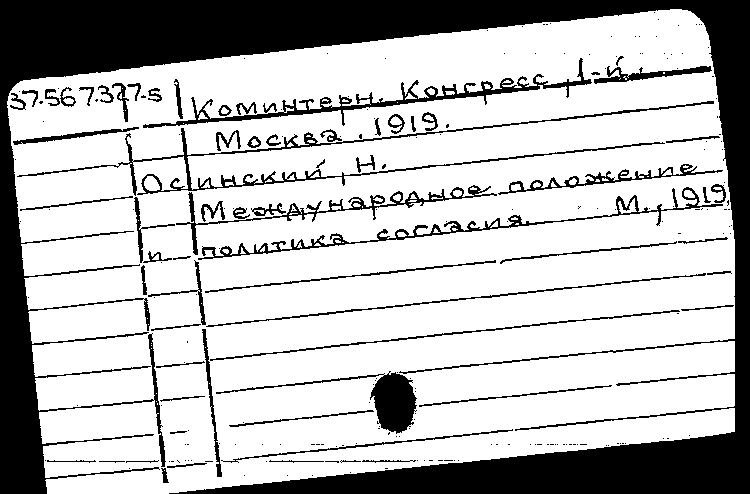 37-567.327-s Коминтерн. Конгресс, 1-й.
Москва. 1919.
Осинский, Н.
Международное положение
и политика согласия. М., 1919